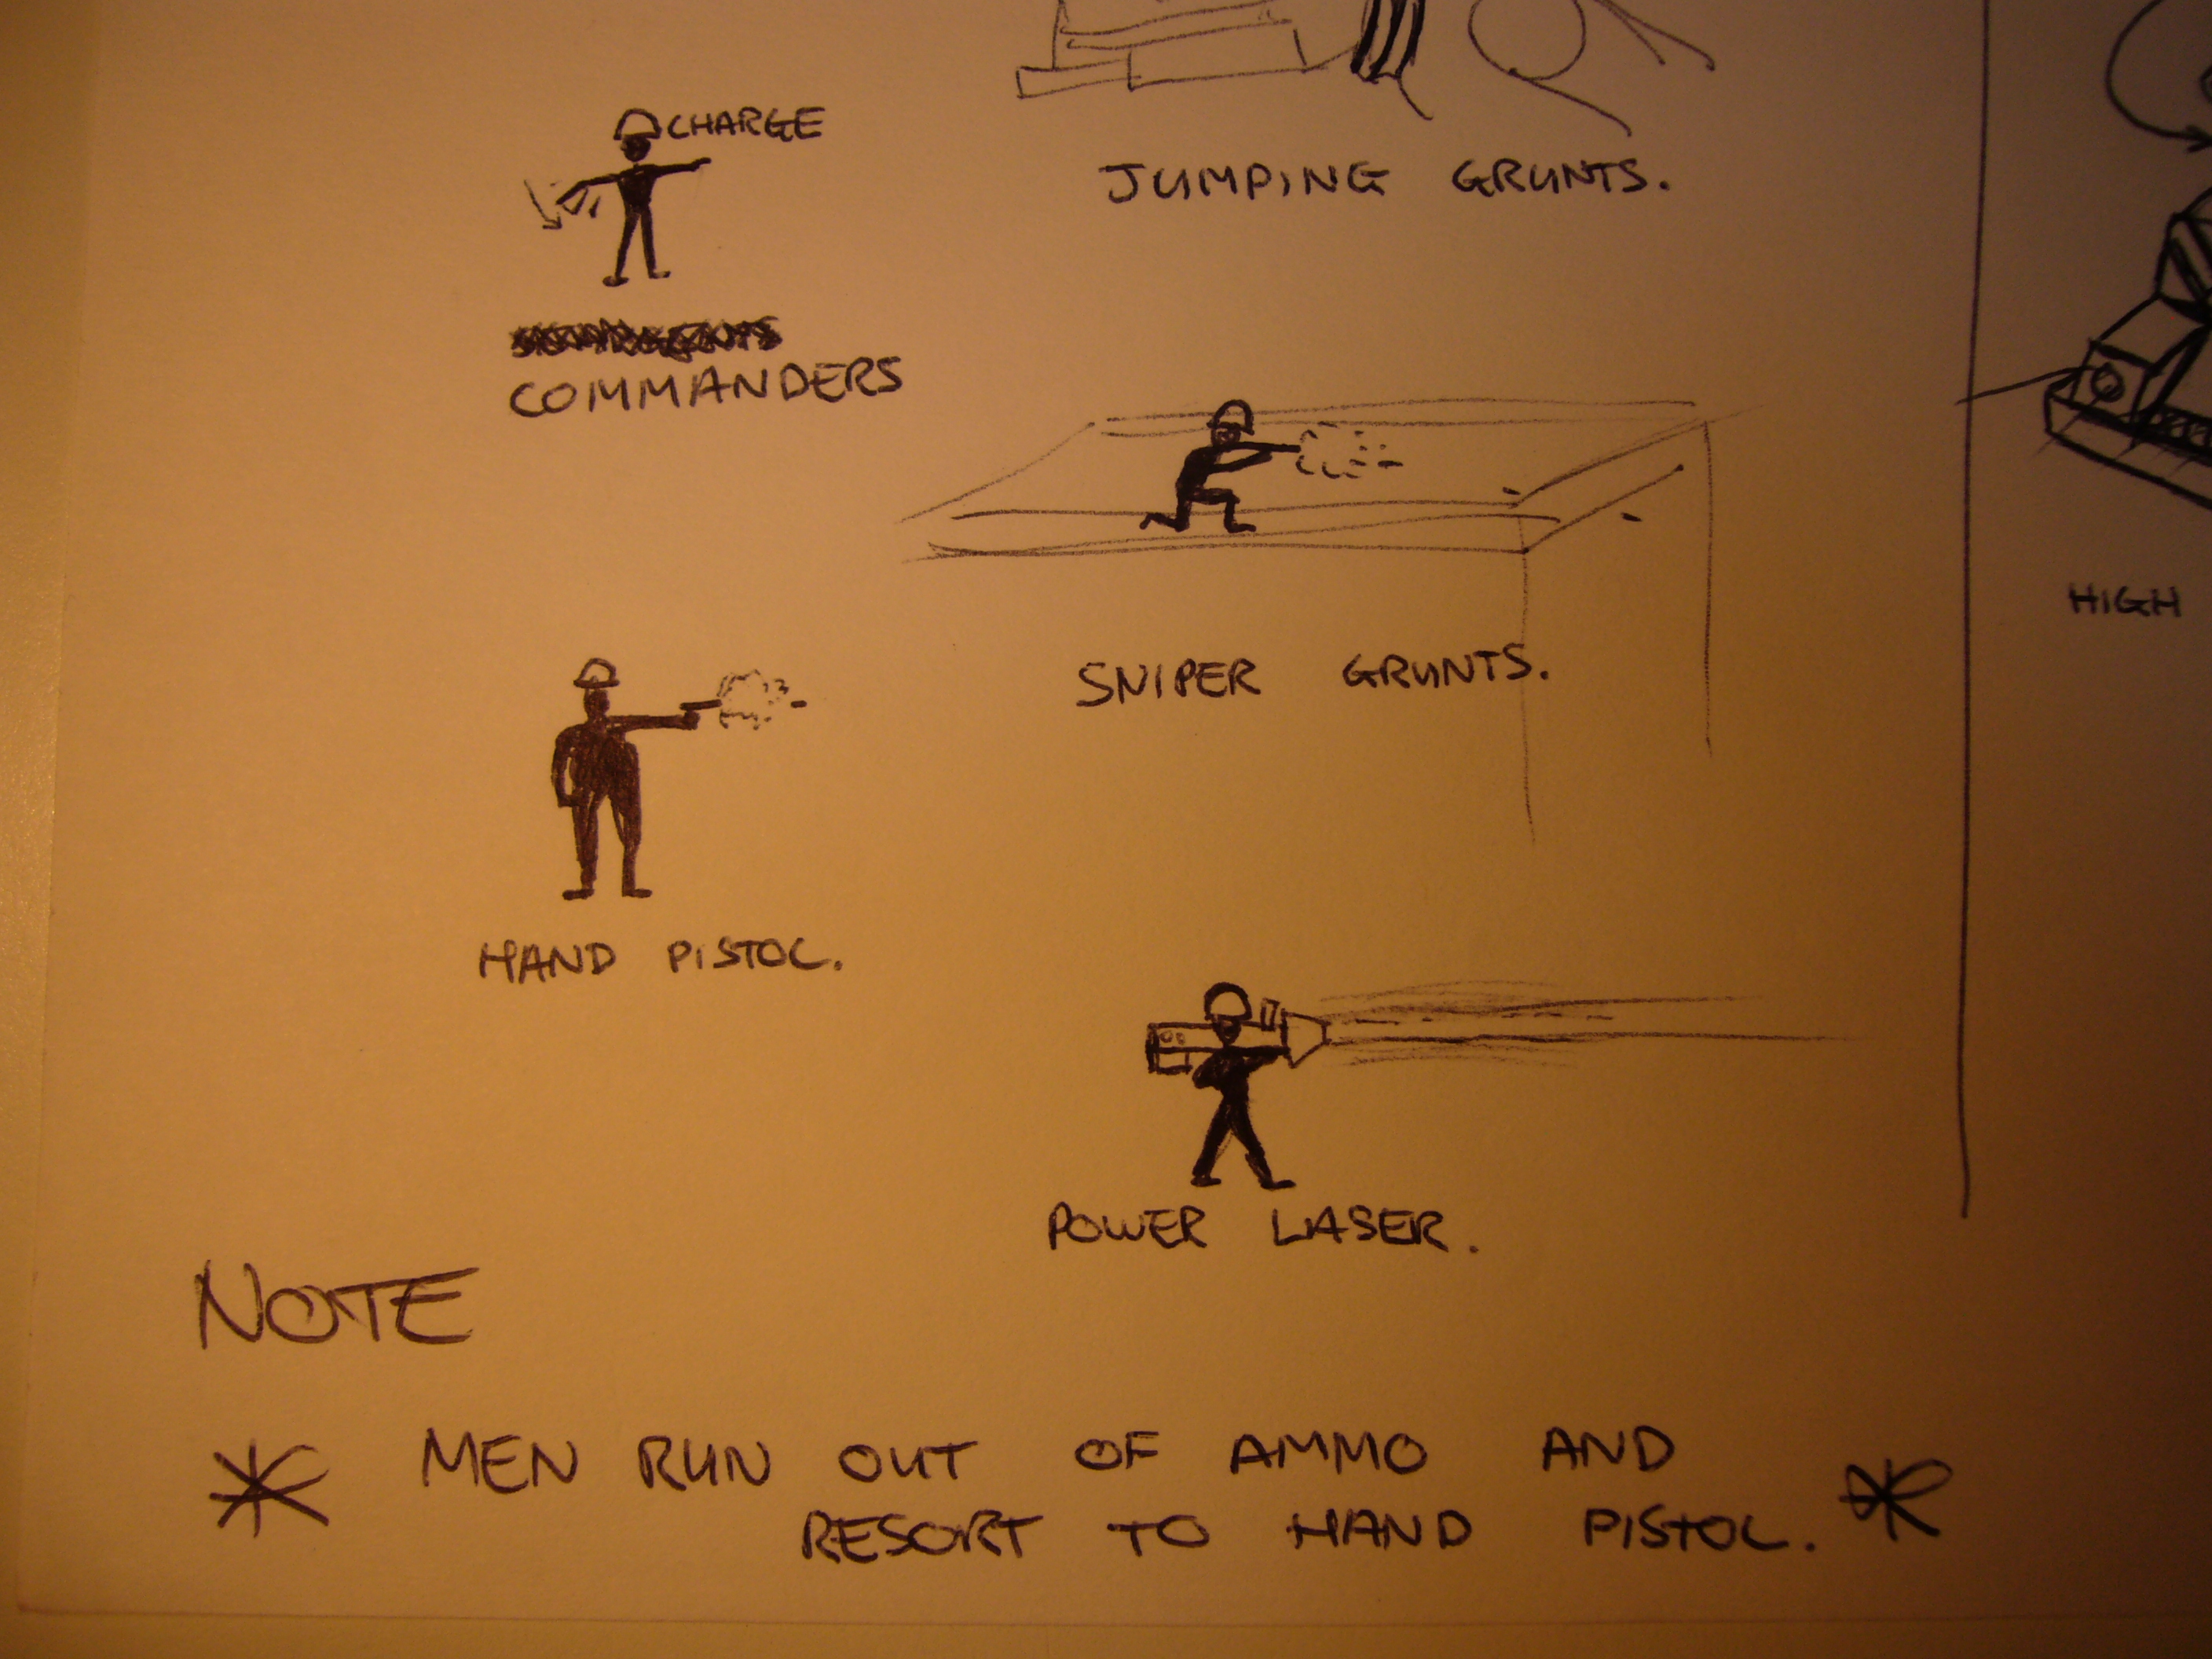 CHARGE
JUMPING GRUNTS.
COMMANDERS
HIGH
SNIPER GRUNTS.
HAND PISTOL.
POWER LASER.
NOTE
* MEN RUN OUT OF AMMO AND
RESORT TO HAND PISTOL. *